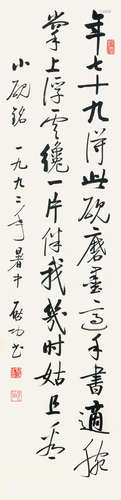 年七十九得此砚磨墨适手书适腕
掌上浮云才一片伴我几时姑且看
小砚铭 一九九二年暑中 启功书